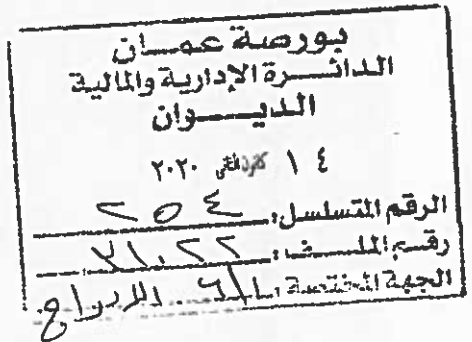 بورصة عمان
الدائرة الإدارية والمالية
الديوان
١٤ كانون الثاني ٢٠٢٠
الرقم المتسلسل: ٢٥٤
رقم الملف: ٣١٠٢٢
الجهة المختصة: